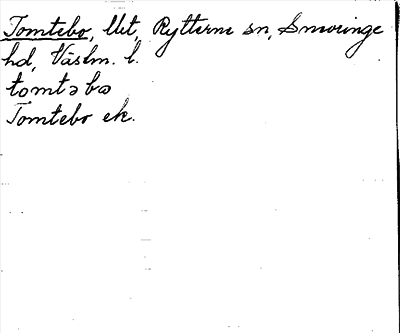 Tomtebo, llet, Rytterne sn, Snevringe
hd, Västm. l.
tomtəbω
Tomtebo ek.